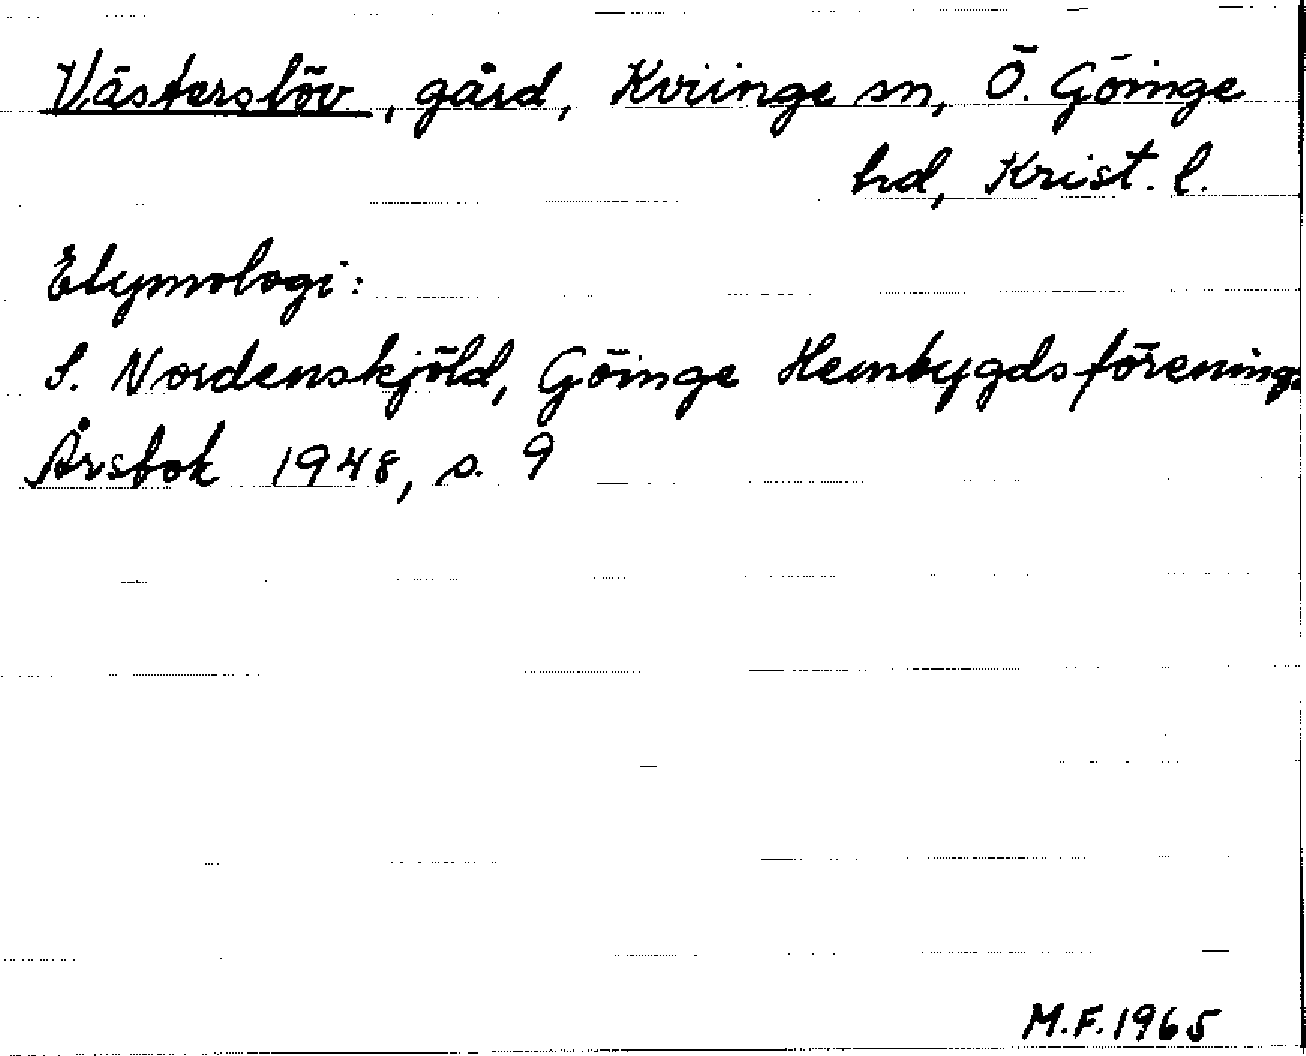 Västerslöv, gård, Kviinge sn, Ö. Göinge
hd, Krist. l.
Etymologi:
S. Nordenskjöld, Göinge Hembygdsförenings
Årsbok 1948, s. 9
M.F. 1965